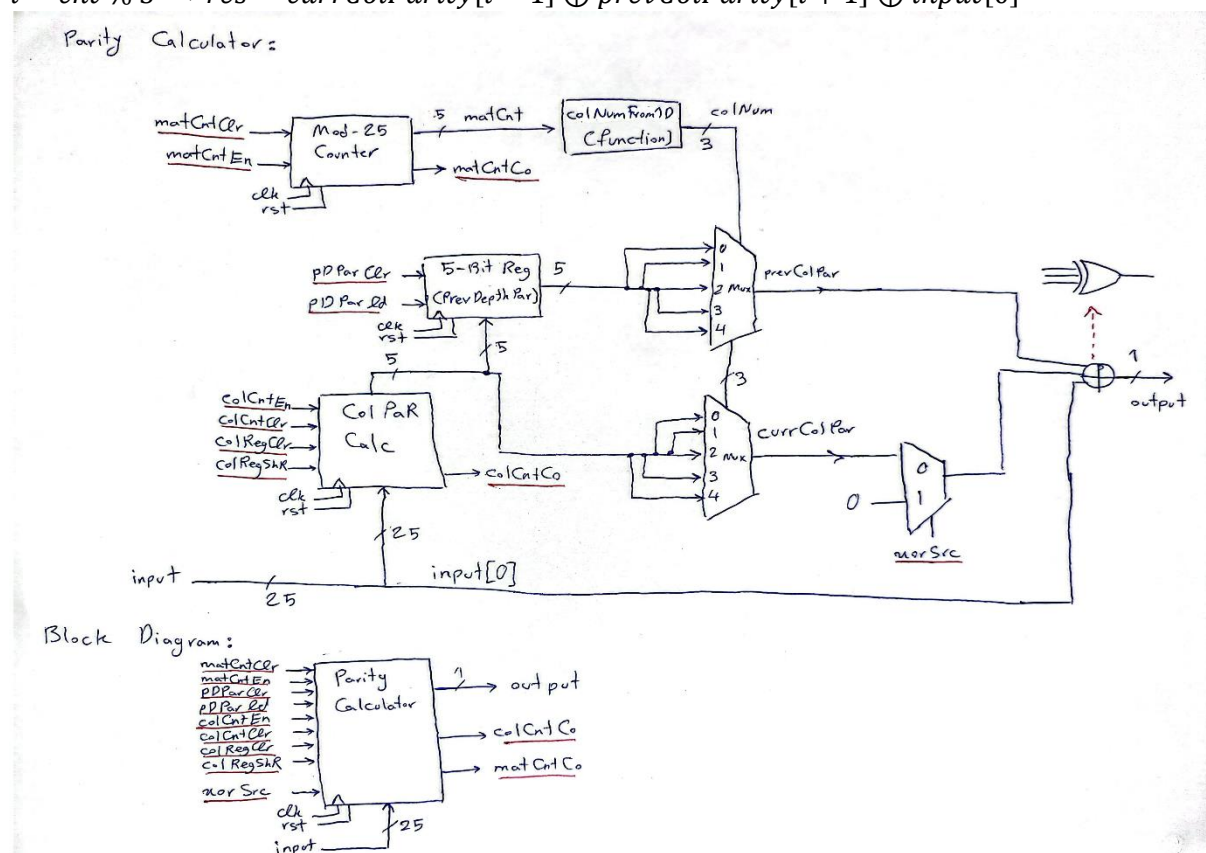 i = cnt % 5 → res = currColParity[i − 1] ⊕ prevColParity[i + 1] ⊕ input[0]
Parity Calculator:
matCntClr
matCntEn
Mod-25
Counter
clk
rst
5
matCnt
matCntCo
colNumFrom1D
(function)
colNum
3
pDParClr
pDParld
5-Bit Reg
(PrevDepthPar)
clk
rst
5
5
0
1
2 Mux
3
4
prevColPar
3
colCntEn
colCntClr
colRegClr
colRegShR
Col PaR
Calc
clk
rst
5
colCntCo
25
0
1
2 Mux
3
4
currColPar
0
0
1
xorSrc
1
output
input
25
input[0]
Block Diagram:
matCntClr
matCntEn
pDParClr
pDParld
colCntEn
colCntClr
colRegClr
colRegShR
xorSrc
Parity
Calculator
clk
rst
input
25
1
output
colCntCo
matCntCo